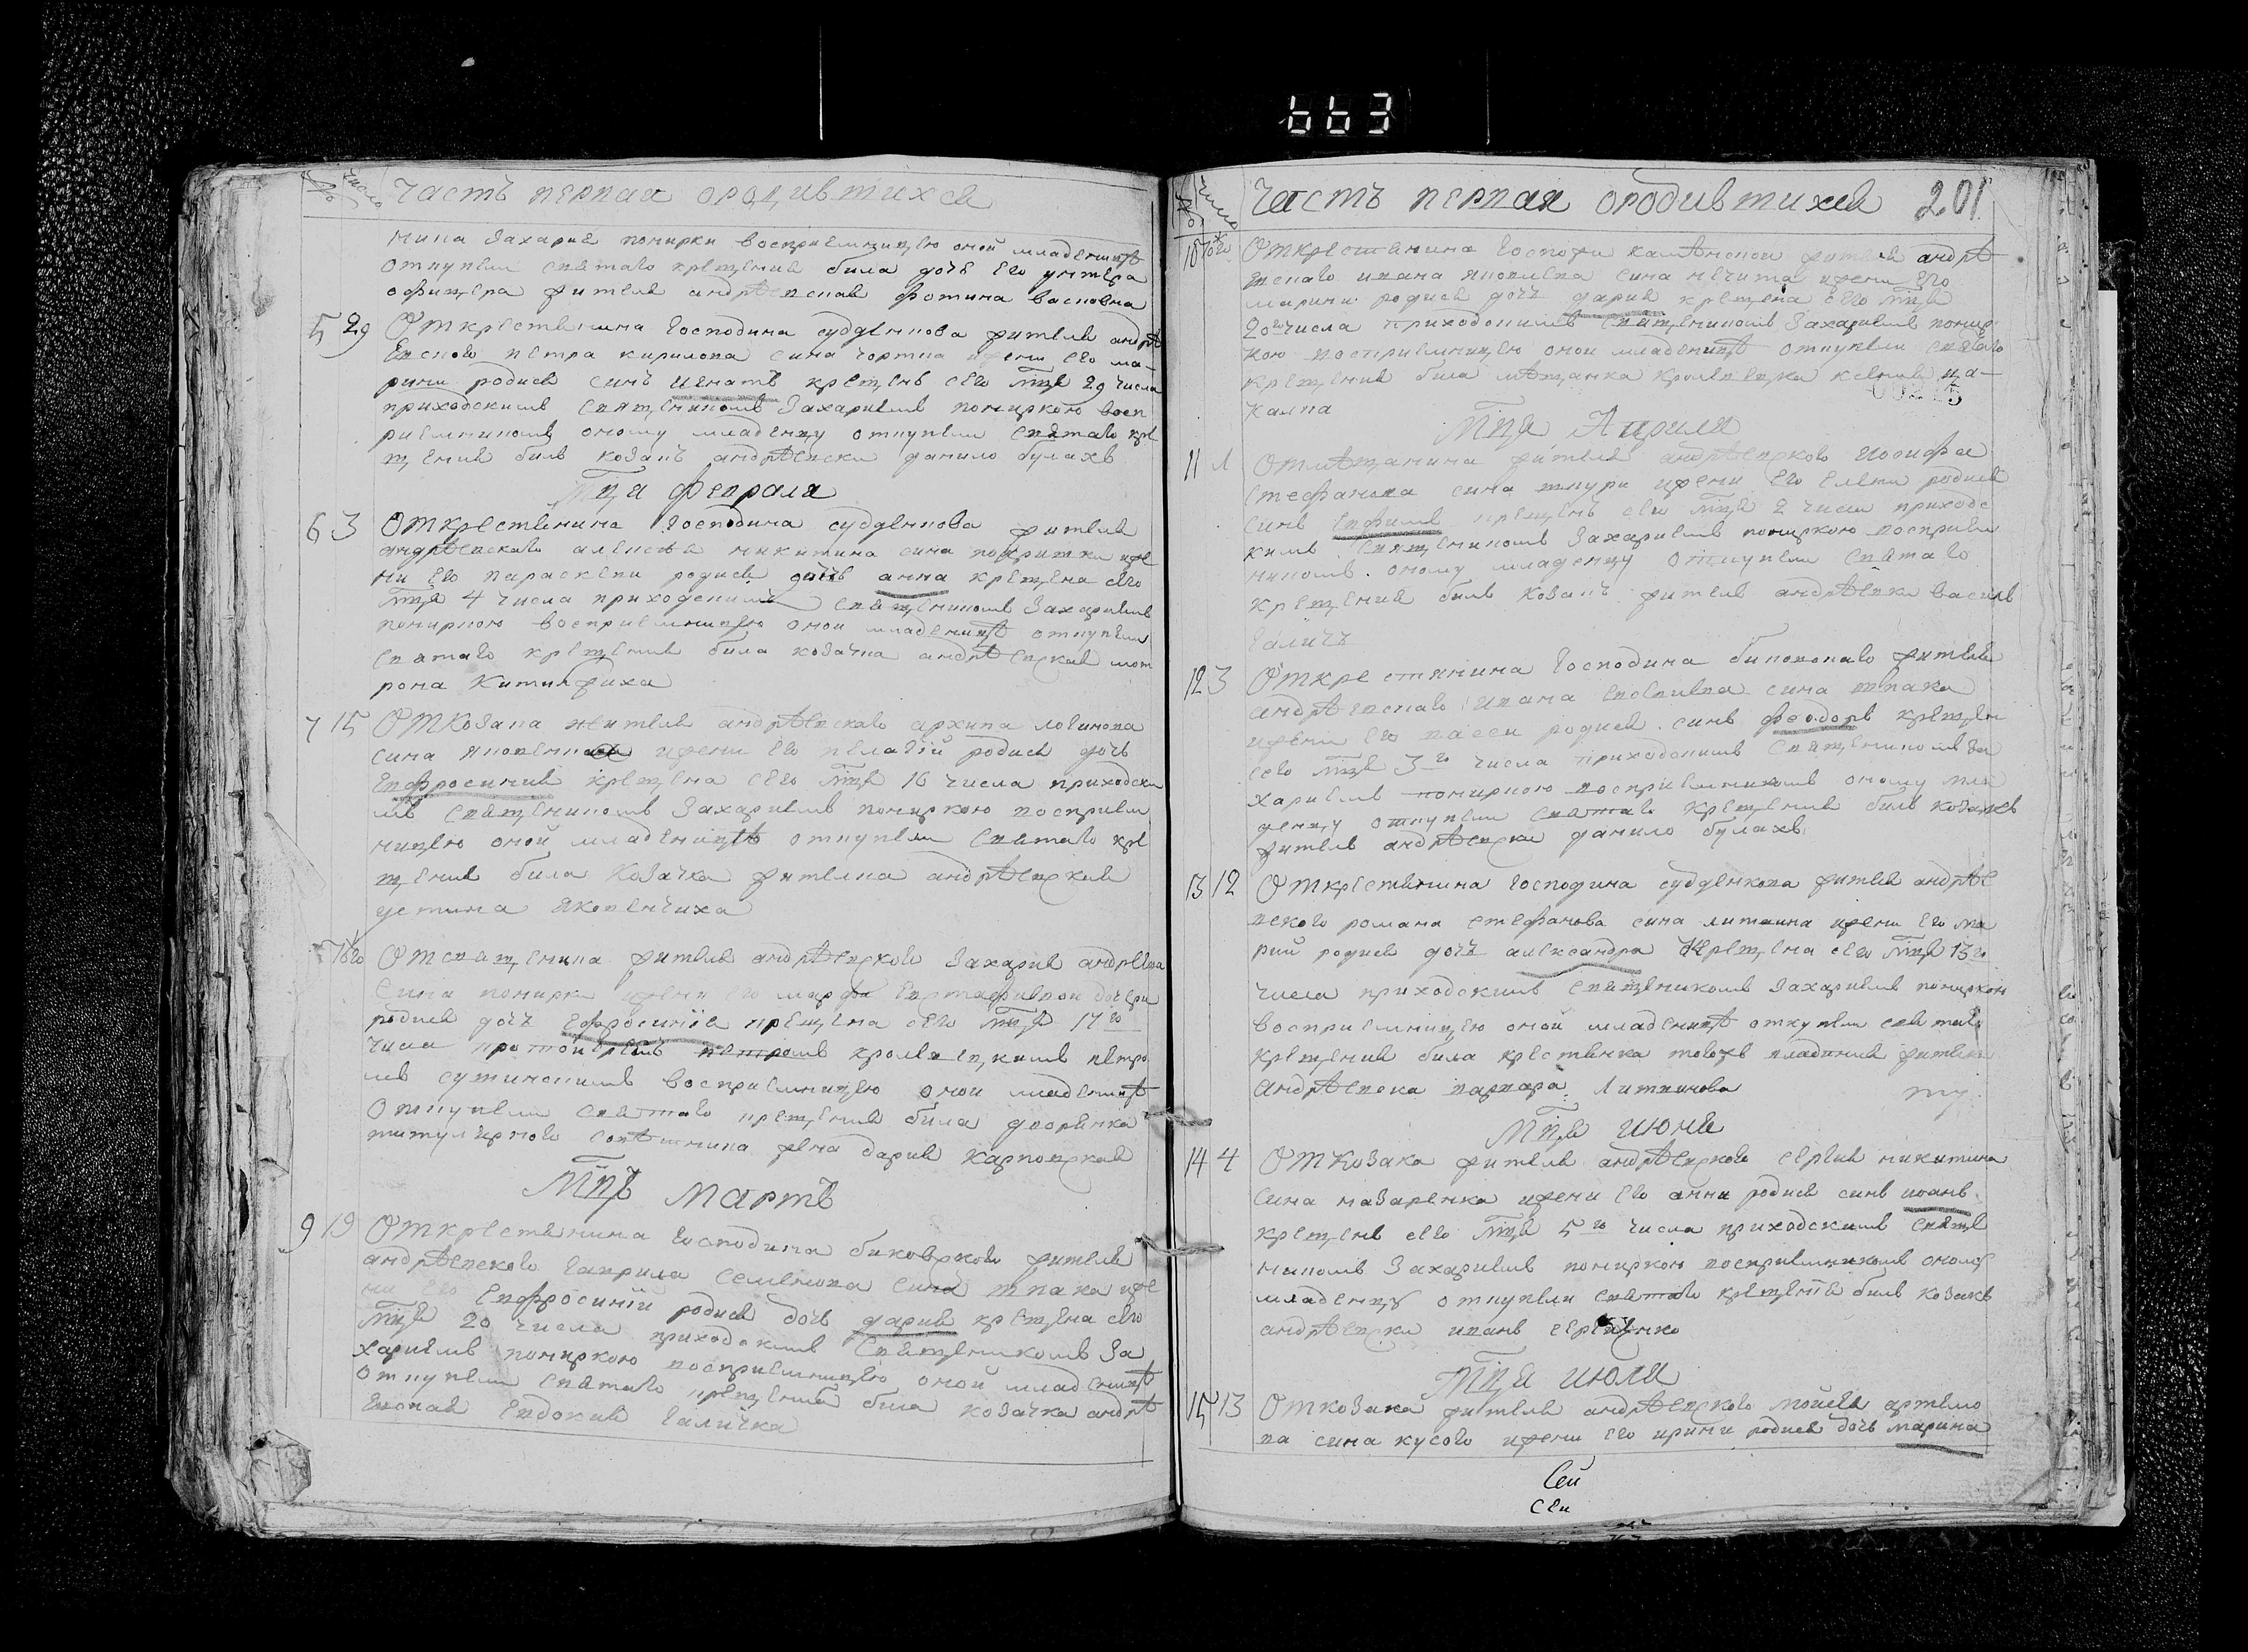 663
№ число Часть первая ородившихся
нина Захария понирки восприемницею оной младеницѣ
откупели святаго крещения била дочь его унтера
офицера жителя андрѣевская фотина васиовна
5 29 Открестянина Господина судденкова жителя андрѣ
евского петра кирилова сина чортка жени его ма-
рини родися синъ игнатъ крещенъ сего мця 29 числа
приходскимъ священикомъ Захариемъ понуркою восп
риемникомъ оному младенцу откупели святаго кре
щения билъ козакъ андрѣевски данило булахъ
Мця февраля
6 3 Открестянина Господина судденкова жителя
андрѣевскаго алексѣя никитина сина покритки же
ни его параскеви родися дочь анна крещена сего
мця 4 числа приходскимъ священикомъ Захариемъ
пониркою восприемницею оной младеницѣ откупели
святаго крещения била козачка андрѣевская мот
рона
7 15 Откозака жителя андрѣевскаго архипа логинова
сина яковенка жени его пелагіи родися дочь
евфросиния крещена сего мця 16 числа приходски
мъ священикомъ Захариемъ пониркою восприем
ницею оной младеницѣ откупели святаго кре
щения била Козачка жителка андрѣевская
устина яковенчиха
16го Отсвященика жителя андрѣевского Захария андрѣева
сина понирки жени его марфи евстафиевой дочери
родися дочъ ефросиніия крещена сего мця 17го
числа протоиереемъ петромъ кролевецкимъ петро
мъ сутинскимъ восприемницею оной младеницѣ
Откупели святаго крещения била дворянка
титулярного совѣтника жена дария Карповская
Мцъ мартъ
9 19 Открестянина Господина биковского жителя
андрѣевского гаврила семенова сина ткака же
ни его евфросиніи родися дочь дария крещена сего
мця 20 числа приходскимъ священикомъ За
хариемъ понуркою восприемницею оной младеницѣ
откупели святаго крещения била козачка андрѣ
евская евдокия галичка
Часть первая ородившихся 201
10 20го Открестянина Госпожи калѣнской жителя андрѣ
евскаго ивана яковлева сина нечита жени его
марини родися дочъ дария крещена сего мця
20го числа приходскимъ священикомъ Захариемъ понир
кою восприемницею оной младеницѣ откупели святаго
крещения била мѣщанка кролевецка ксения ца-
калка
Мця Априля
11 1 Отмѣщанина жителя андрѣевского иосифа
стефанова сина жени его елени родися
синъ евфимъ крещенъ сего мця 2 числа приходс
кимъ священикомъ Захариемъ понуркою восприем
никомъ оному младенцу откупели святаго
крещения билъ козакъ житель андрѣевки василь
галичъ
12 3 Открестянина Господина биковскаго жителя
андрѣевскаго ивана сина ткака
жени его васси родися синъ феодоръ крещен
сего мця 3го числа приходскимъ священикомъ За
хариемъ пониркою восприемникомъ оному мла
денцу откупели святаго крещения билъ козакъ
житель андрѣевски данило булахъ
13 12 Открестянина Господина судденкова жителя андрѣе
вского романа стефанова сина литвина жени его ма
рии родися дочъ александра крещена сего мця 13го
числа приходскимъ священикомъ Захариемъ понирком
восприемницею оной младеницѣ откупели святаго
крещения била крестянка тогожъ владения жителка
андрѣевска варвара Литвинова
Мця июня
14 4 Откозака жителя андрѣевского сергия никитина
сина назаренка жени его анни родися синъ иоанъ
крещенъ сего мця 5го числа приходскимъ свяще
никомъ Захариемъ понуркою восприемникомъ оному
младенцу откупели святаго крещения билъ козакъ
андрѣевски иванъ сергиенко
Мця июля
15 13 Откозака жителя андрѣевского мойсея артемо
ва сина кусого жени его ирини родися дочь марина
Сей
сен